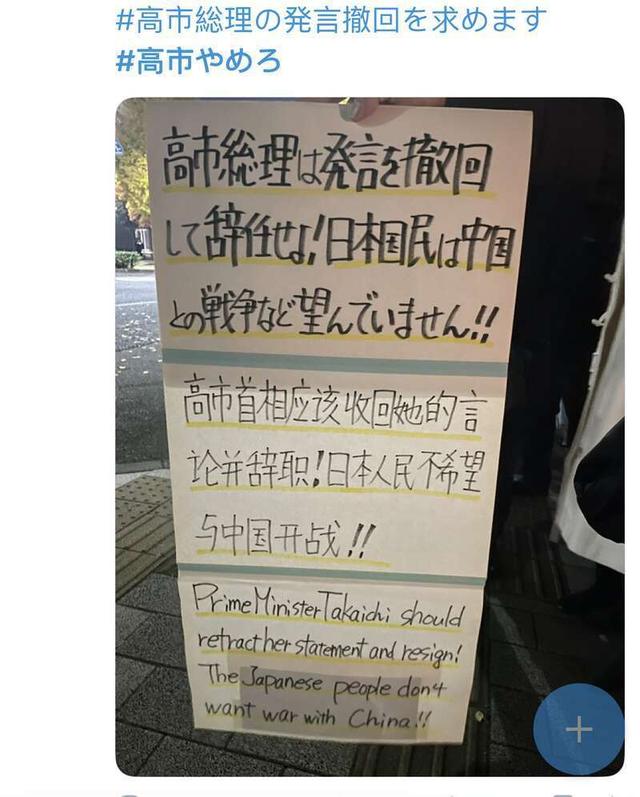 #高市総理の発言撤回を求めます
#高市やめろ
高市総理は発言を撤回
して辞任せよ!日本国民は中国
との戦争など望んでいません!!
高市首相应该收回她的言
论并辞职!日本人民不希望
与中国开战!!
Prime Minister Takaichi should
retract her statement and resign!
The Japanese people don't
want war with China!!